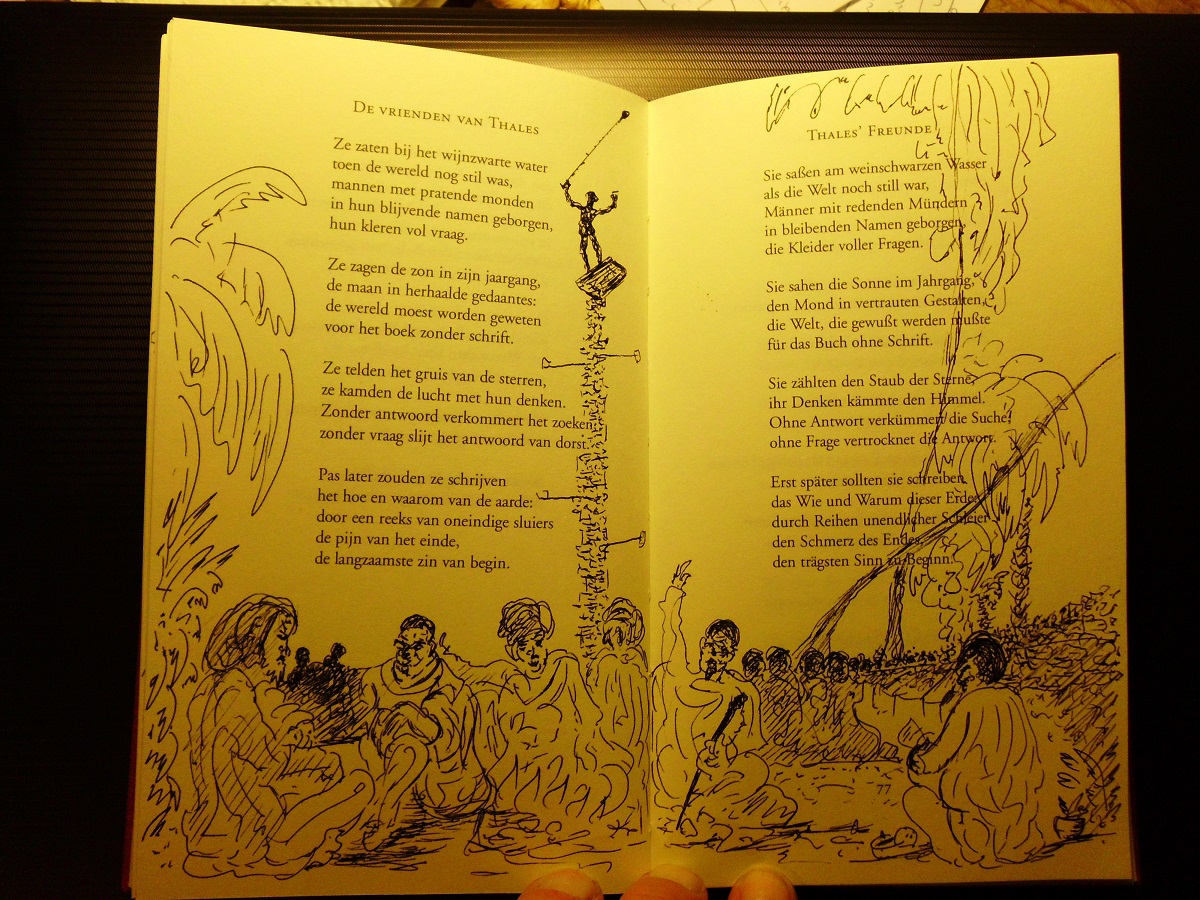 De vrienden van Thales
Ze zaten bij het wijnzwarte water
toen de wereld nog stil was,
mannen met pratende monden
in hun blijvende namen geborgen,
hun kleren vol vraag.
Ze zagen de zon in zijn jaargang,
de maan in herhaalde gedaantes:
de wereld moest worden geweten
voor het boek zonder schrift.
Ze telden het gruis van de sterren,
ze kamden de lucht met hun denken.
Zonder antwoord verkommert het zoeken,
zonder vraag slijt het antwoord van dorst.
Pas later zouden ze schrijven
het hoe en waarom van de aarde:
door een reeks van oneindige sluiers
de pijn van het einde,
de langzaamste zin van begin.
Thales' Freunde
Sie saßen am weinschwarzen Wasser
als die Welt noch still war,
Männer mit redenden Mündern
in bleibenden Namen geborgen,
die Kleider voller Fragen.
Sie sahen die Sonne im Jahrgang,
den Mond in vertrauten Gestalten,
die Welt, die gewußt werden mußte
für das Buch ohne Schrift.
Sie zählten den Staub der Sterne,
ihr Denken kämmte den Himmel.
Ohne Antwort verkümmert die Suche,
ohne Frage vertrocknet die Antwort.
Erst später sollten sie schreiben,
das Wie und Warum dieser Erde,
durch Reihen unendlicher Schleier
den Schmerz des Endes,
den trägsten Sinn zu Beginn.